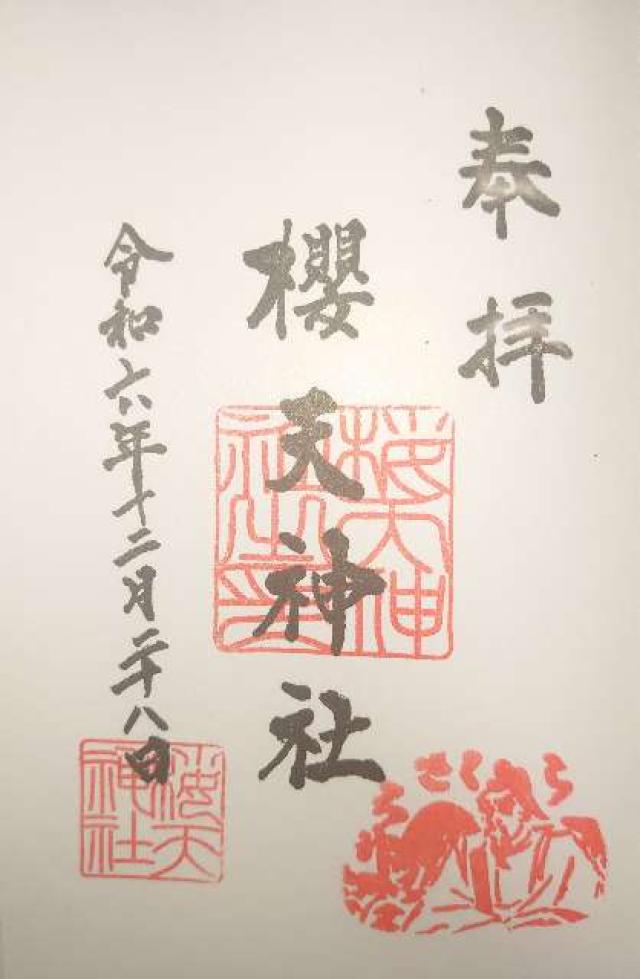 奉拝
櫻天神社
令和六年十二月二十八日
桜天神
社之印
桜天
神社
さくら